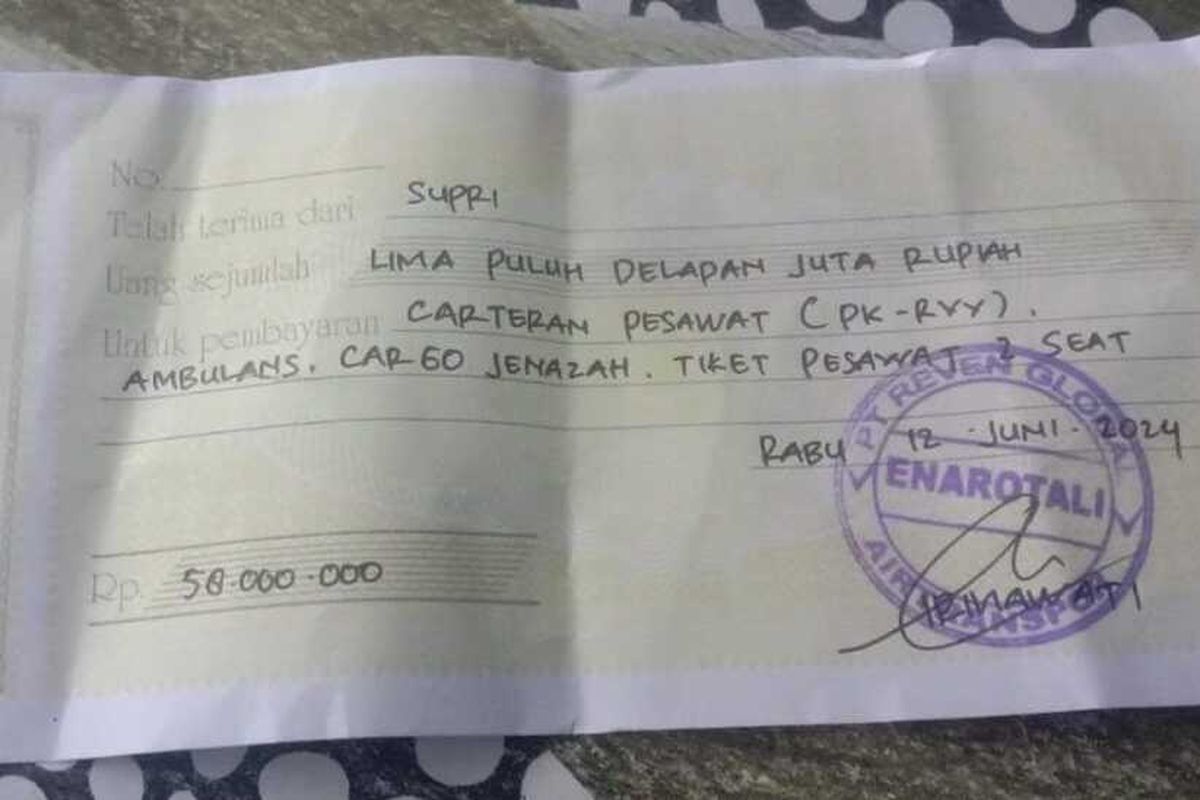 No.
Telah terima dari SUPRI
Uang sejumlah LIMA PULUH DELAPAN JUTA RUPIAH
Untuk pembayaran CARTERAN PESAWAT (PK-RVV).
AMBULANS. CARGO JENAZAH. TIKET PESAWAT 2 SEAT
RABU 12 · JUNI · 2024
PT REVEN GLOBAL
ENAROTALI
AIR TRANSPOR
Rp. 58.000.000
IRINAWATI